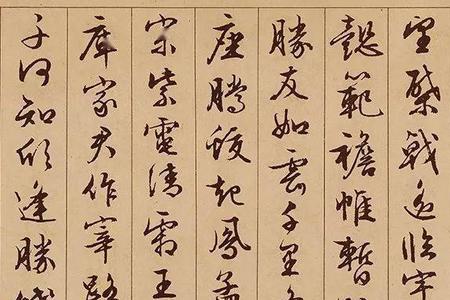 望棨戟遙臨宇
懿範襜帷暫
勝友如雲千里
座騰蛟起鳳孟
宗紫電清霜王
庫家君作宰路
子何知躬逢勝